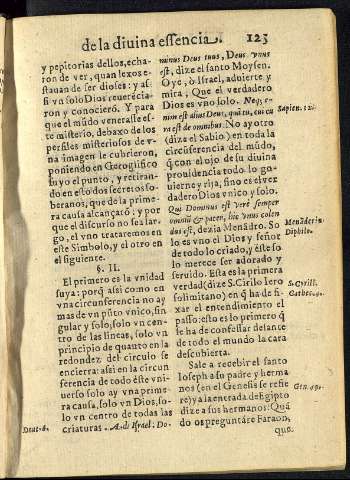 de la diuina essencia. 123
y pepitorias dellos, echa-
ron de ver, quan lexos e-
stauan de ser dioses: y as-
si vn solo Dios reuerēcia-
ron y conocierō. Y para
que el mūdo venerasse es-
te misterio, debaxo de los
perfiles misteriosos de v-
na imagen le cubrieron,
poniendo en Geroglifico
suyo el punto, y retiran-
do en estos dos secretos so-
beranos, que de la prime-
ra causa alcançarō: y por
que el discurso no sea lar-
go, el vno trataremos en
este Simbolo, y el otro en
el siguiente.
§. II.
El primero es la vnidad
suya: porq̃ assi como en
vna circunferencia no ay
mas de vn pūto vnico, sin
gular y solo, solo vn cen-
tro de las lineas, solo vn
principio de quanto en la
redondez del circulo se
encierra: assi en la circun
ferencia de todo este vni-
uerso solo ay vna prime-
ra causa, solo vn Dios, so-
lo vn centro de todas las
Deut. 6.
criaturas. Audi Israel: Do-
minus Deus tuus, Deus vnus
est, dize el santo Moysen.
Oye, ò Israel, aduierte y
mira, Que el verdadero
Dios es vno solo. Neq; e-
nim est alius Deus, quā tu, cui cu
Sapien. 12.
ra est de omnibus. No ay otro
(dize el Sabio) en toda la
circūferencia del mūdo,
q̃ con el ojo de su diuina
prouidencia todo lo go-
uierne y rija, sino es el ver
dadero Dios vnico y solo.
Qui Dominus est verè semper
omniū & pater, hic vnus colen
dus est, dezia Menādro. So
Menāder in
Diphilo.
lo es vno el Dios y señor
de todo lo criado, y este so
lo merece ser adorado y
seruido. Esta es la primera
verdad (dize S. Cirilo Iero
S. Cyrill.
solimitano) en q̃ ha de fi-
Cathec. 4.
xar el entendimiento el
passo: esto es lo primero q̃
se ha de confessar delante
de todo el mundo la cara
descubierta.
Sale a recebir el santo
Ioseph a su padre y herma
nos (en el Genesis se refie
Gen. 46.
re) y a la entrada de Egipto
dize a sus hermanos: Quā
do os preguntāre Faraon,
que